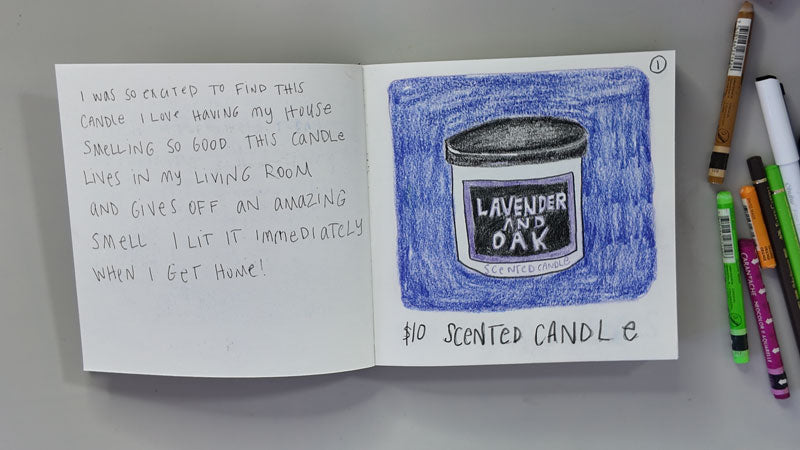 I WAS SO EXCITED TO FIND THIS
CANDLE I LOVE HAVING MY HOUSE
SMELLING SO GOOD THIS CANDLE
LIVES IN MY LIVING ROOM
AND GIVES OFF AN AMAZING
SMELL I LIT IT IMMEDIATELY
WHEN I GET HOME!
1
LAVENDER
AND
OAK
SCENTED CANDLE
$10 SCENTED CANDLE
CARAN D'ACHE
NEOCOLOR II